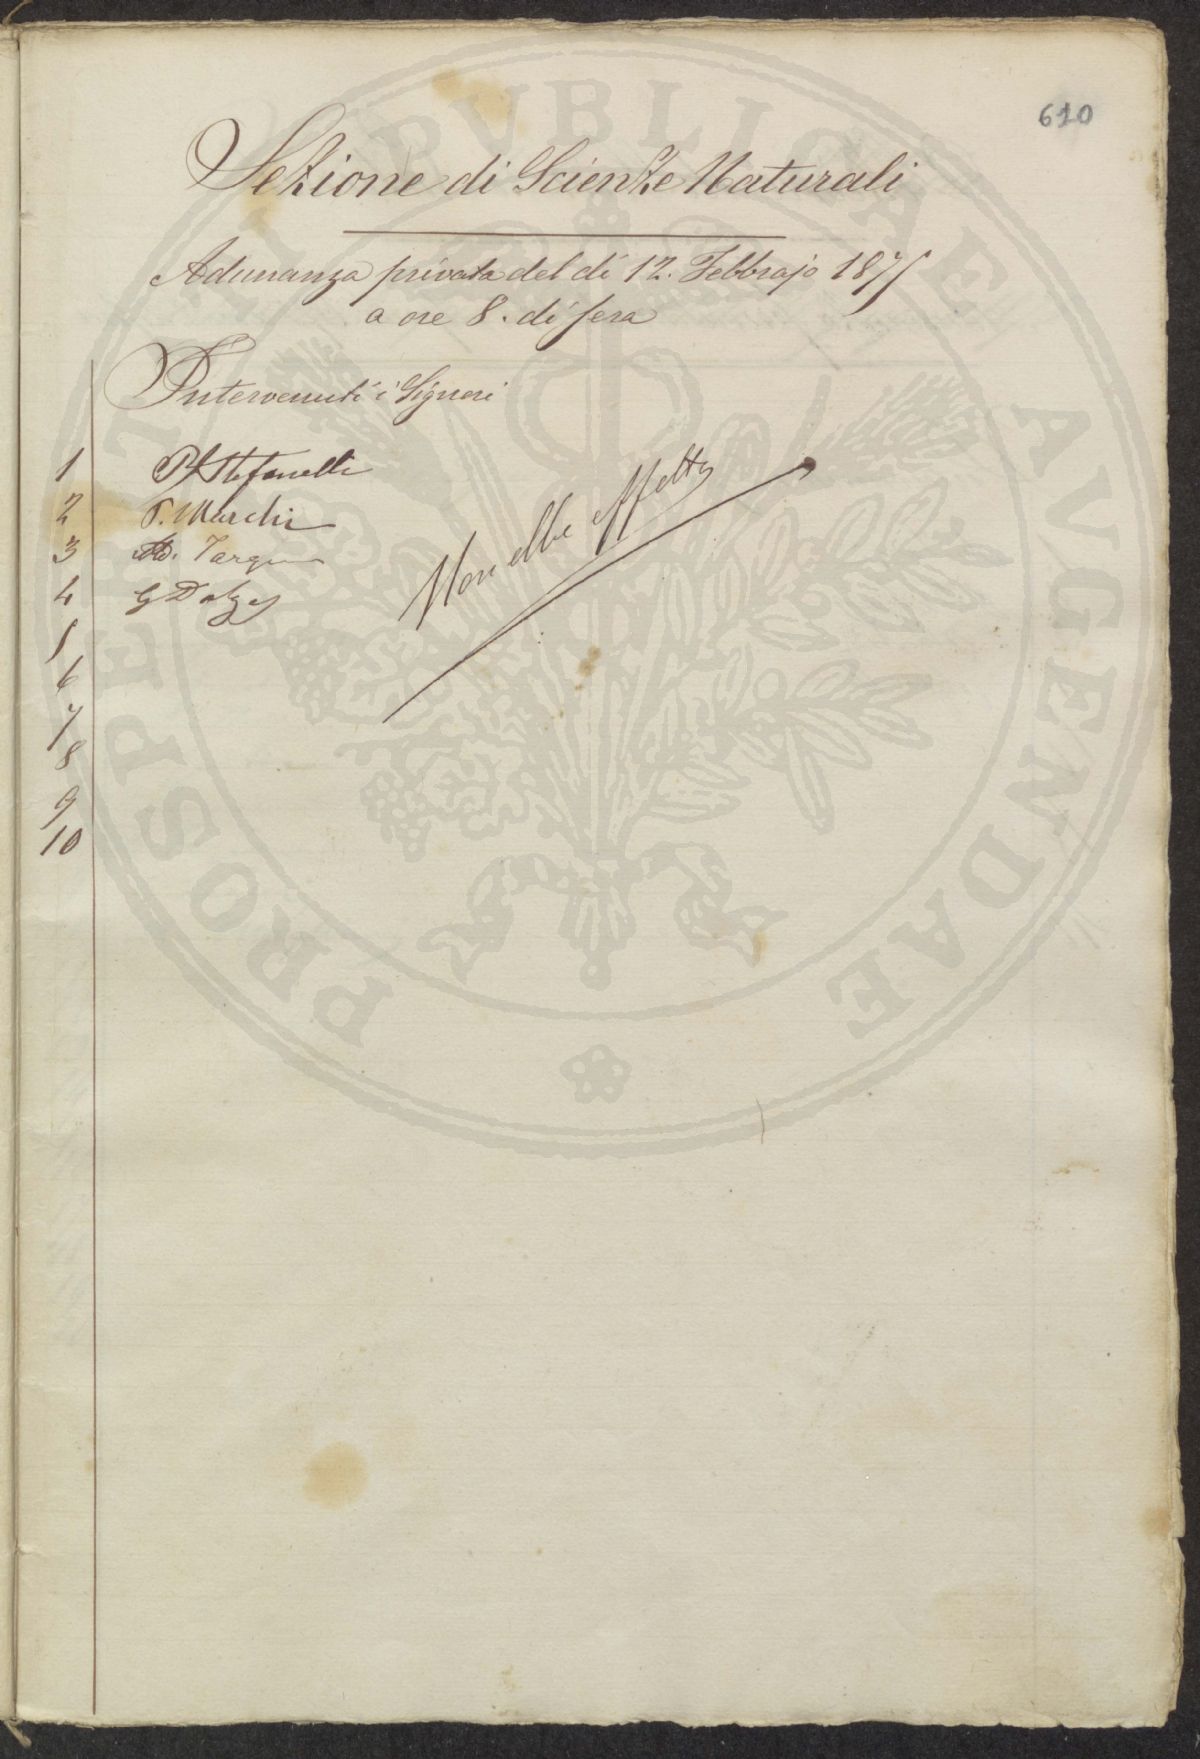 610
Sezione di Scienze Naturali
Adunanza privata del dì 12. Febbrajo 1875
a ore 8. di sera
Intervenuti i Signori
1 P. Stefanelli
2 P. Marchi
3 Ad. Targioni
4 G
5
6
7
8
9
10
Non ebbe effetto
PROSPERITATI PVBLICAE AVGENDAE